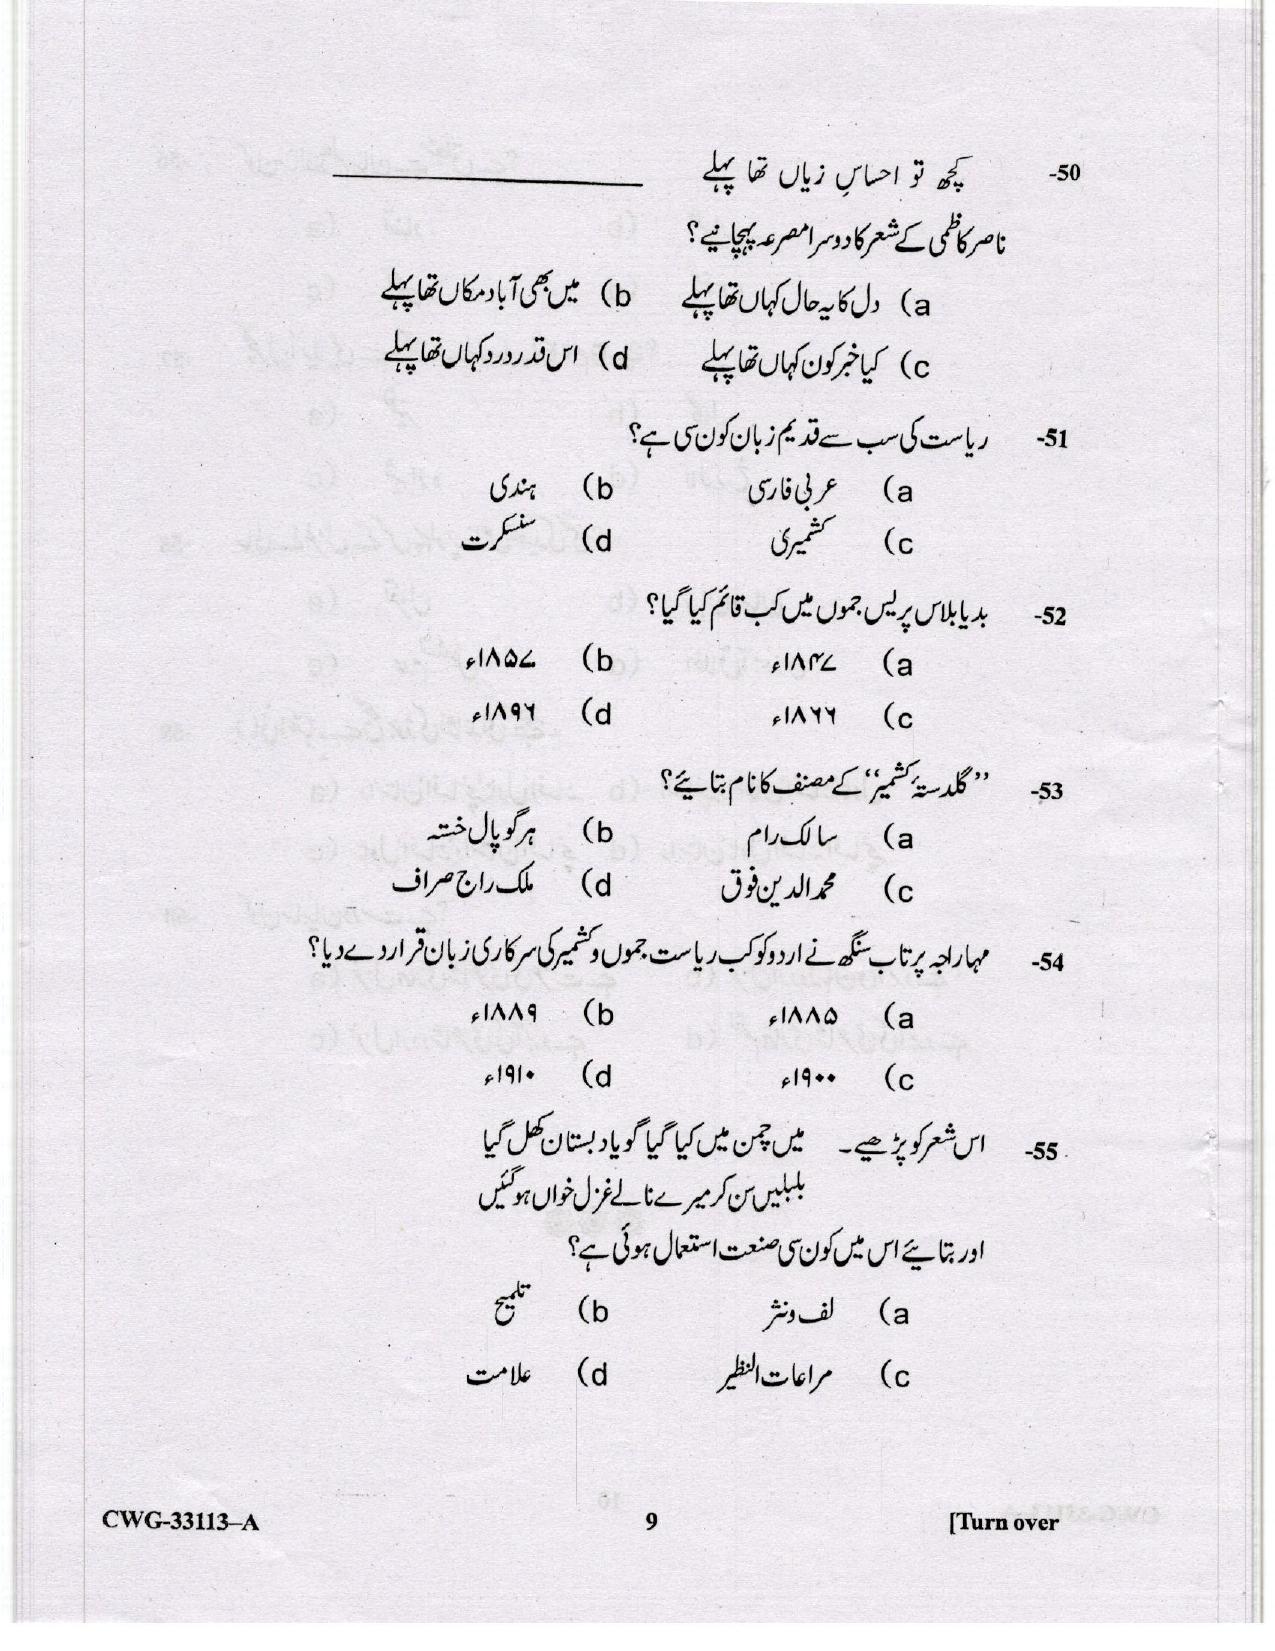 -50 کچھ تو احساسِ زیاں تھا پہلے ____________
ناصر کاظمی کے شعر کا دوسرا مصرعہ پہچانیے؟
a) دل کا یہ حال کہاں تھا پہلے b) میں بھی آباد مکاں تھا پہلے
c) کیا خبر کون کہاں تھا پہلے d) اس قدر درد کہاں تھا پہلے
-51 ریاست کی سب سے قدیم زبان کون سی ہے؟
a) عربی فارسی b) ہندی
c) کشمیری d) سنسکرت
-52 بدیا بلاس پریس جموں میں کب قائم کیا گیا؟
a) ۱۸۴۷ء b) ۱۸۵۷ء
c) ۱۸۶۶ء d) ۱۸۹۶ء
-53 ”گلدستۂ کشمیر“ کے مصنف کا نام بتائیے؟
a) سالک رام b) ہرگوپال خستہ
c) محمد الدین فوق d) ملک راج صراف
-54 مہاراجہ پرتاب سنگھ نے اردو کو کب ریاست جموں و کشمیر کی سرکاری زبان قرار دے دیا؟
a) ۱۸۸۵ء b) ۱۸۸۹ء
c) ۱۹۰۰ء d) ۱۹۱۰ء
-55 اس شعر کو پڑھیے۔ میں چمن میں کیا گیا گویا دبستان کھل گیا
بلبلیں سن کر میرے نالے غزل خواں ہو گئیں
اور بتائیے اس میں کون سی صنعت استعمال ہوئی ہے؟
a) لف و نثر b) تلمیح
c) مراعات النظیر d) علامت
CWG-33113–A 9 [Turn over